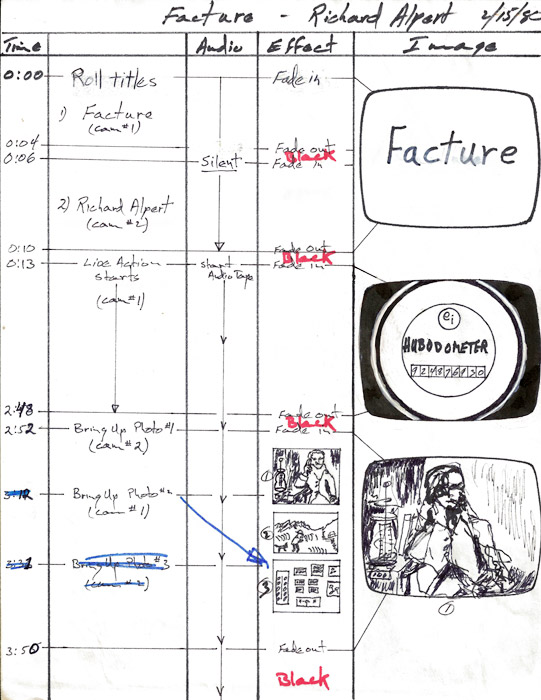 Facture - Richard Alpert 2/15/80
Time Audio Effect Image
0:00 Roll titles Fade in
1) Facture
(cam #1)
0:04 Fade out
Black
0:06 Silent Fade in
Facture
2) Richard Alpert
(cam #2)
0:10 Fade out
Black
0:13 Live Action starts start Audio Tape Fade in
(cam #1)
ei
HUBODOMETER
2:48 Fade out
Black
2:52 Bring Up Photo #1 Fade in
(cam #2)
1
Bring Up Photo #2
(cam #1)
2
Bring Up Photo #3
(cam #2)
3
1
3:50 Fade out
Black